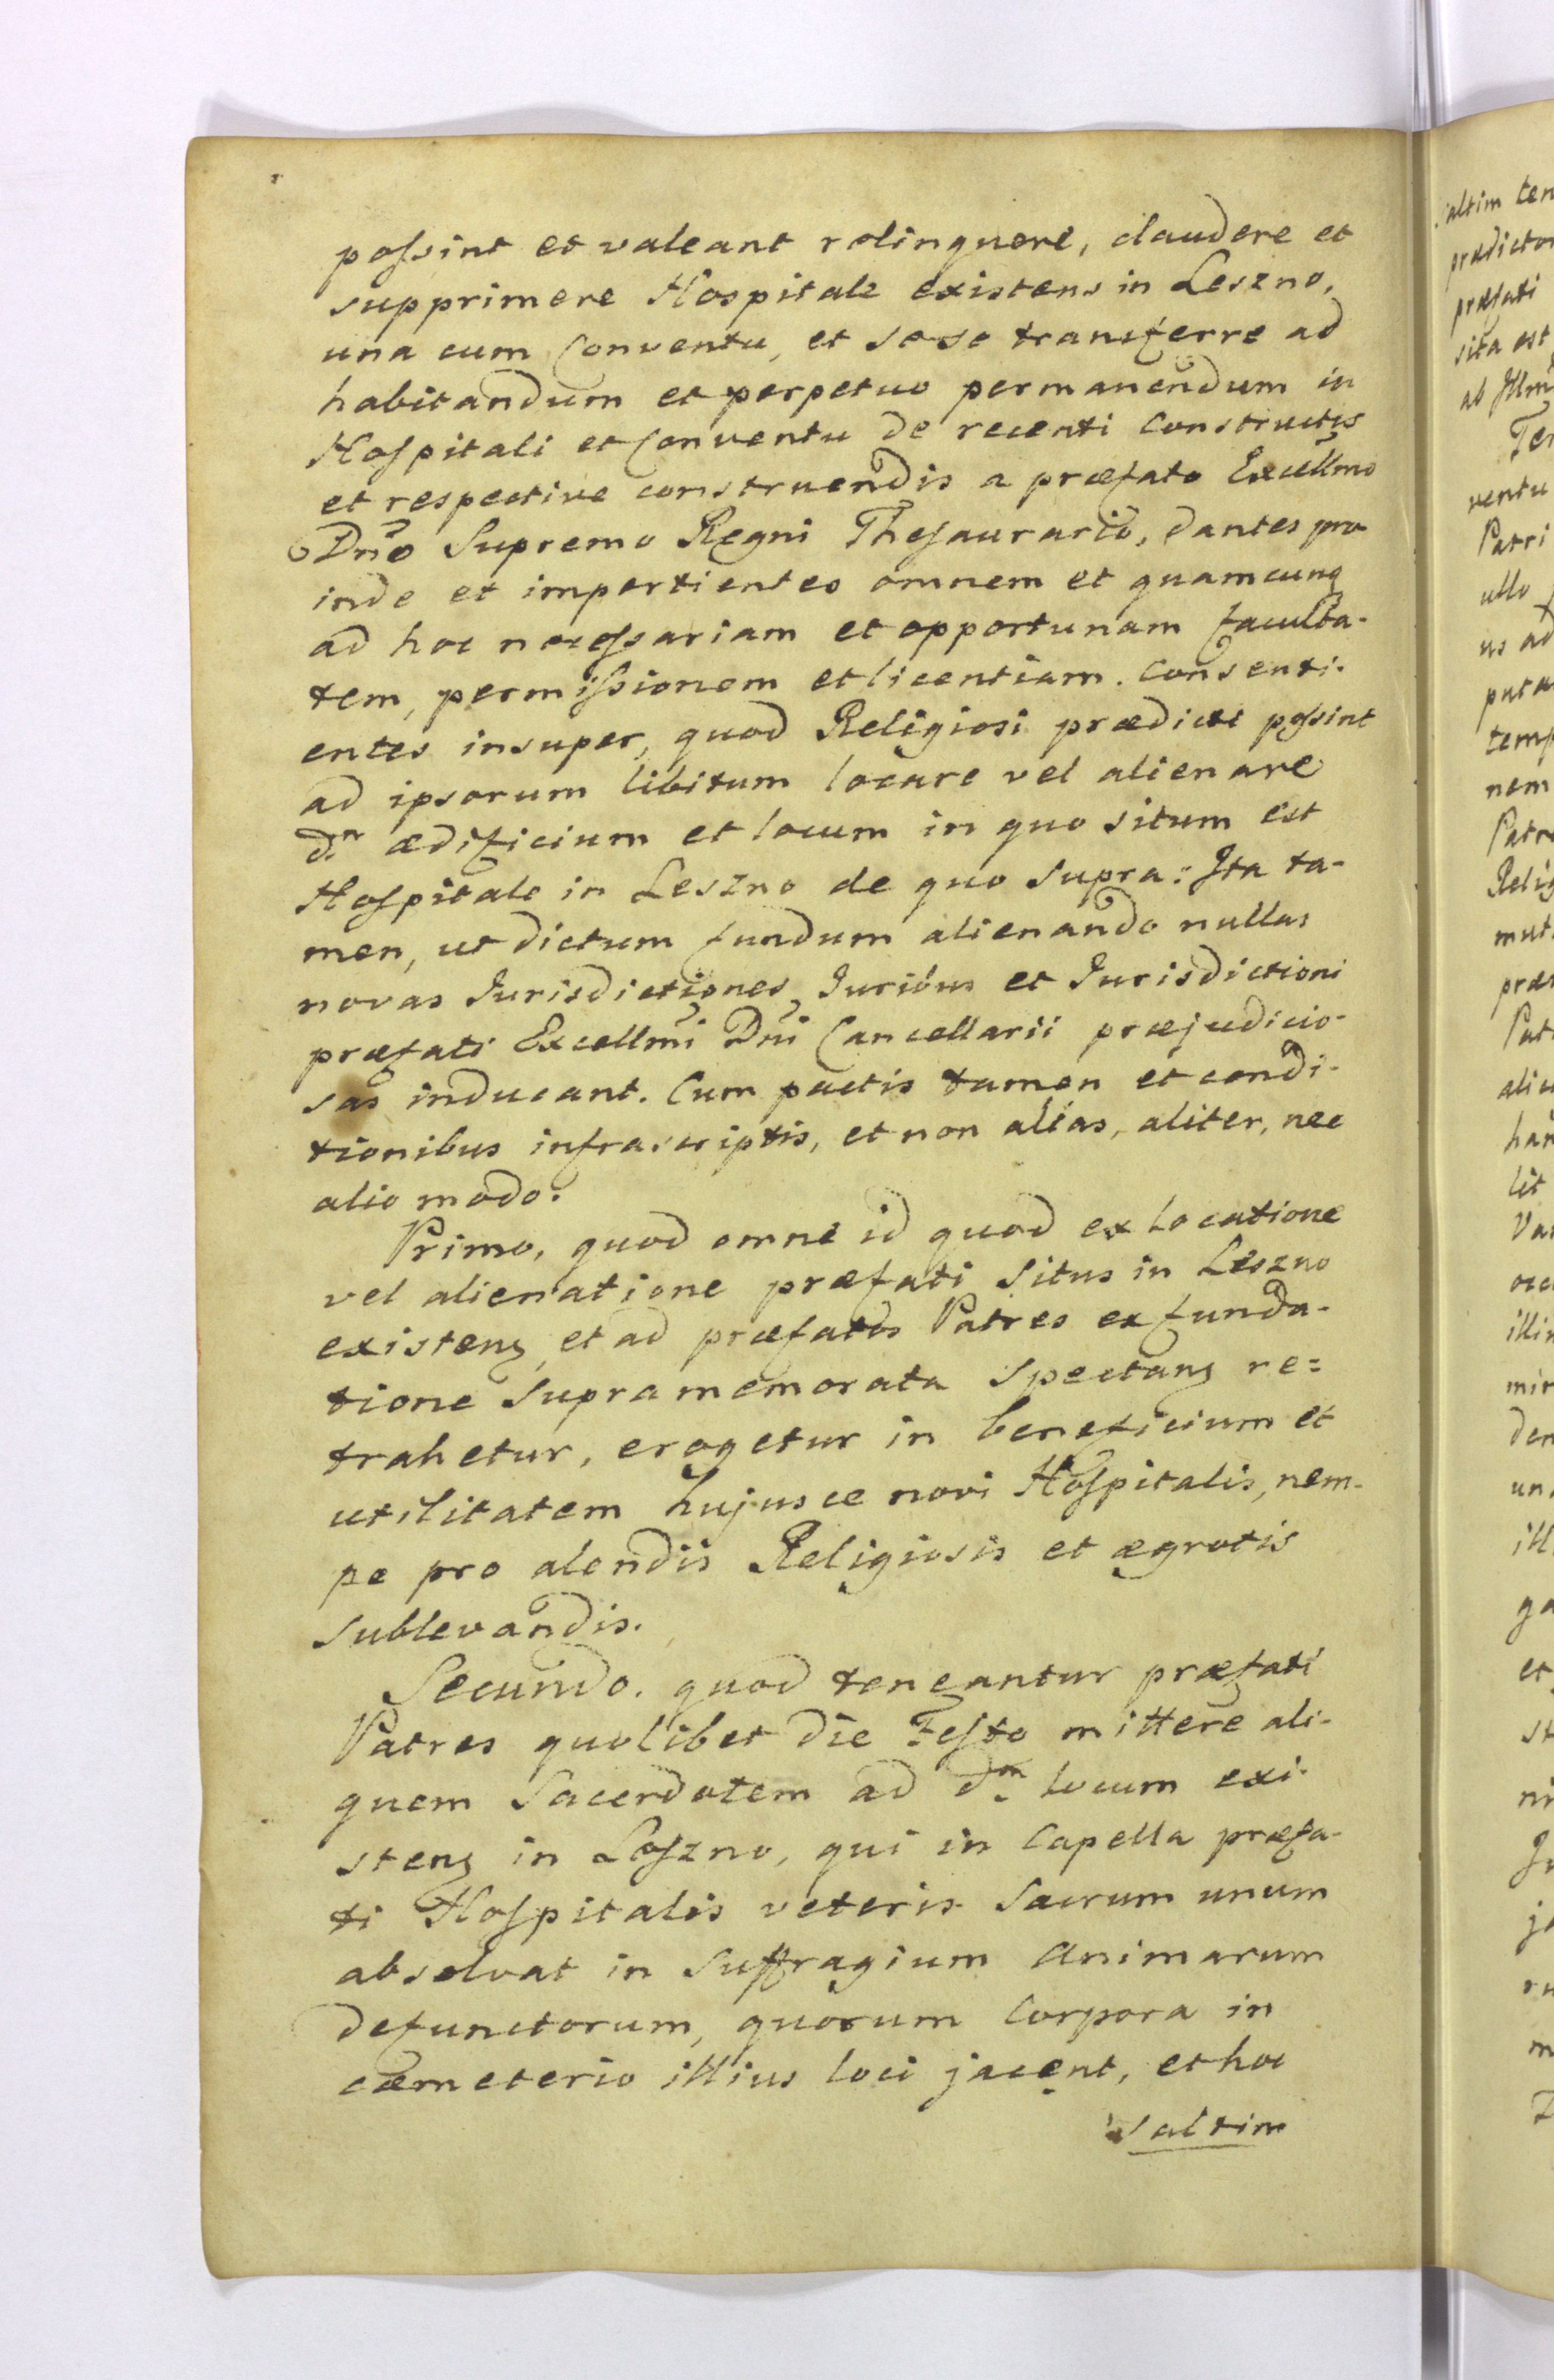 possint et valeant relinquere, claudere et
supprimere Hospitale existens in Leszno,
una cum Conventu, et sese transferre ad
habitandum et perpetuo permanendum in
Hospitali et Conventu de recenti constructis
et respective construendis a præfato Excellmo
Dno Supremo Regni Thesaurario, dantes pro
inde et impertientes omnem et quamcunq
ad hoc necessariam et opportunam faculta-
tem, permissionem et licentiam. Consenti-
entes insuper, quod Religiosi prædicti possint
ad ipsorum libitum locare vel alienare
dm ædificium et locum in quo situm est
Hospitale in Leszno de quo supra: Ita ta-
men, ut dictum fundum alienando nullas
novas Jurisdictiones, Juribus et Jurisdictioni
præfati Excellmi Dni Cancellarii præjudicio-
sas inducant. Cum pactis tamen et condi-
tionibus infrascriptis, et non alias, aliter, nec
alio modo.
Primo, quod omne id quod ex locatione
vel alienatione præfati situs in Leszno
existenq, et ad præfatos Patres ex funda-
tione supra memorata spectanq re=
trahetur, erogetur in beneficium et
utilitatem hujusce novi Hospitalis, nem-
pe pro alendis Religiosis et ægrotis
sublevandis.
Secundo. quod teneantur præfati
Patres quolibet die Festo mittere ali-
quem Sacerdotem ad dm locum exi-
stenq in Leszno, qui in Capella præfa-
ti Hospitalis veteris Sacrum unum
absolvat in Suffragium Animarum
defunctorum, quorum Corpora in
cæmeterio illius loci jacent, et hoc
saltim
saltim ten
prædictor
præfati
sita est
ab Illm
Ter
ventu
Patri
ullo
us ad
puta
temp
nem
Patr
Relig
mut
præs
Pat
alic
han
lit
Va
illi
mir
den
un
ill
ga
et
st
ni
m